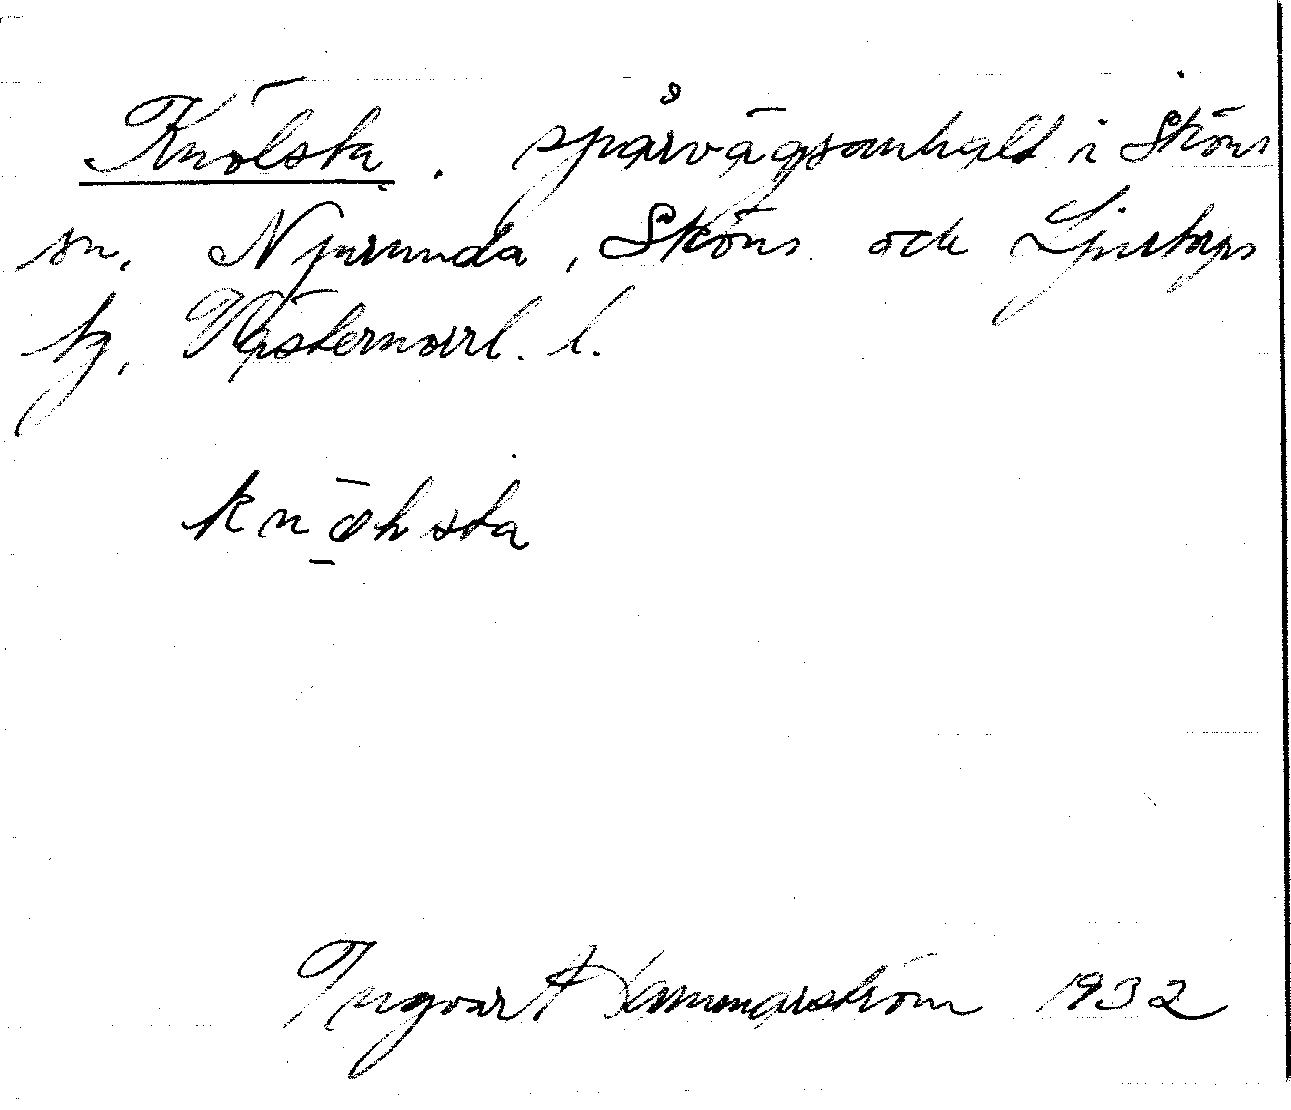 Knölsta. spårvägsanhalt i Sköns
sn, Njurunda, Sköns och Ljustorps
tg, Västernorrl. l.
knöhsta
Ingvar Hammarström 1932